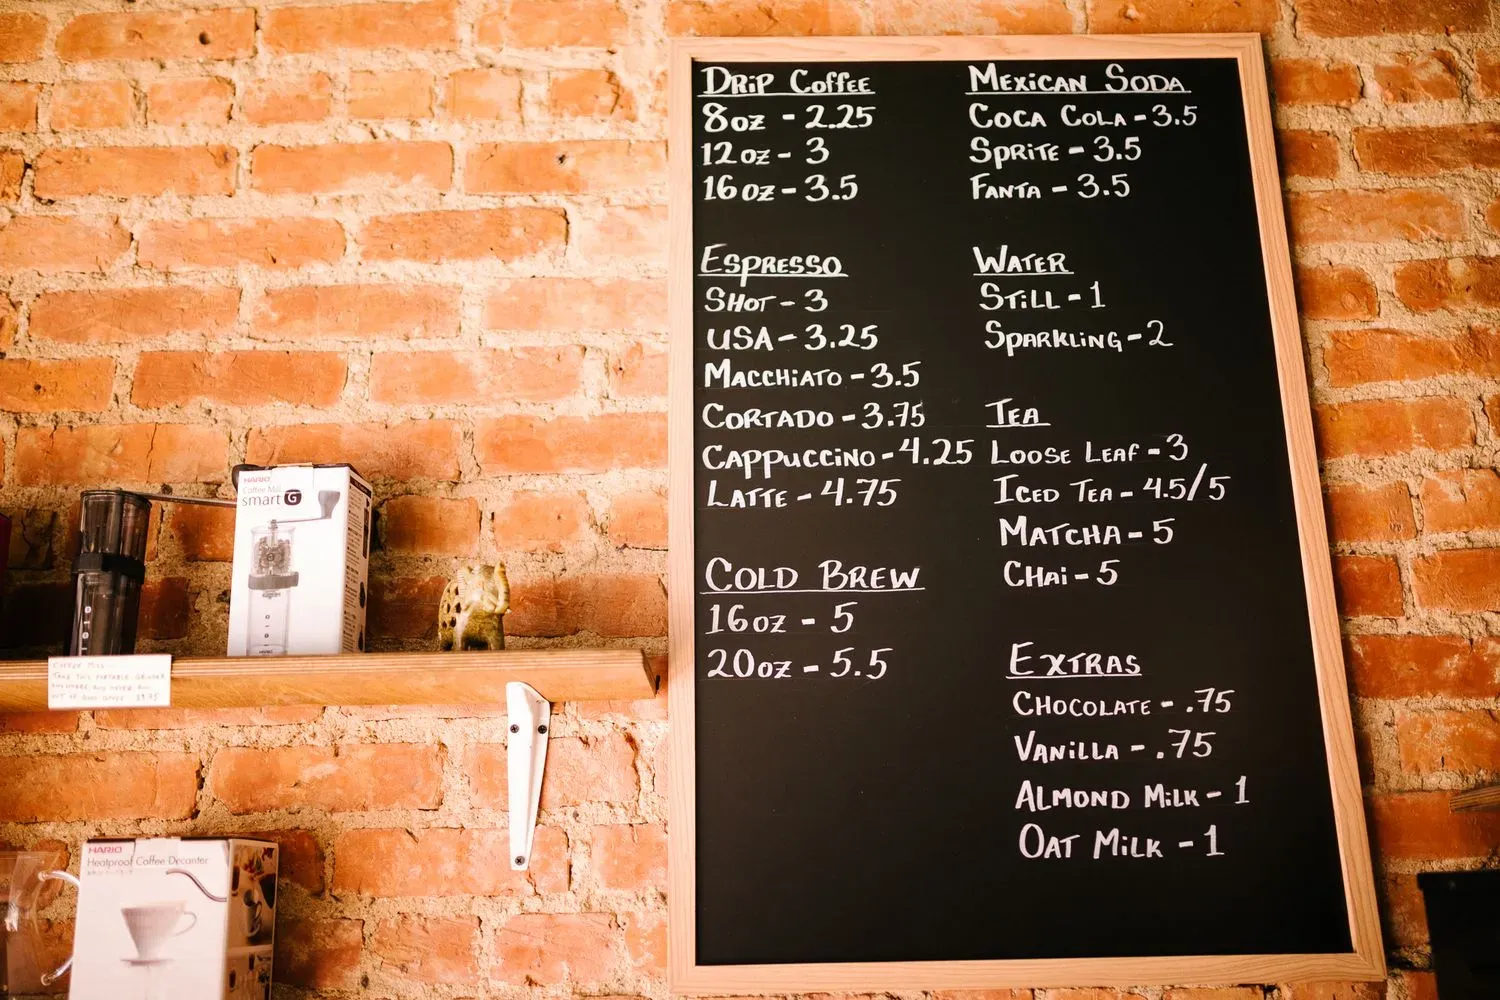 Drip Coffee
8oz - 2.25
12oz - 3
16oz - 3.5
Espresso
Shot - 3
USA - 3.25
Macchiato - 3.5
Cortado - 3.75
Cappuccino - 4.25
Latte - 4.75
Cold Brew
16oz - 5
20oz - 5.5
Mexican Soda
Coca Cola - 3.5
Sprite - 3.5
Fanta - 3.5
Water
Still - 1
Sparkling - 2
Tea
Loose Leaf - 3
Iced Tea - 4.5/5
Matcha - 5
Chai - 5
Extras
Chocolate - .75
Vanilla - .75
Almond Milk - 1
Oat Milk - 1
HARIO
Coffee Mill
smart G
HARIO
COFFEE MILL
TAKE THIS PORTABLE GRINDER
ANYWHERE AND NEVER RUN
OUT OF GOOD COFFEE
HARIO
Heatproof Coffee Decanter